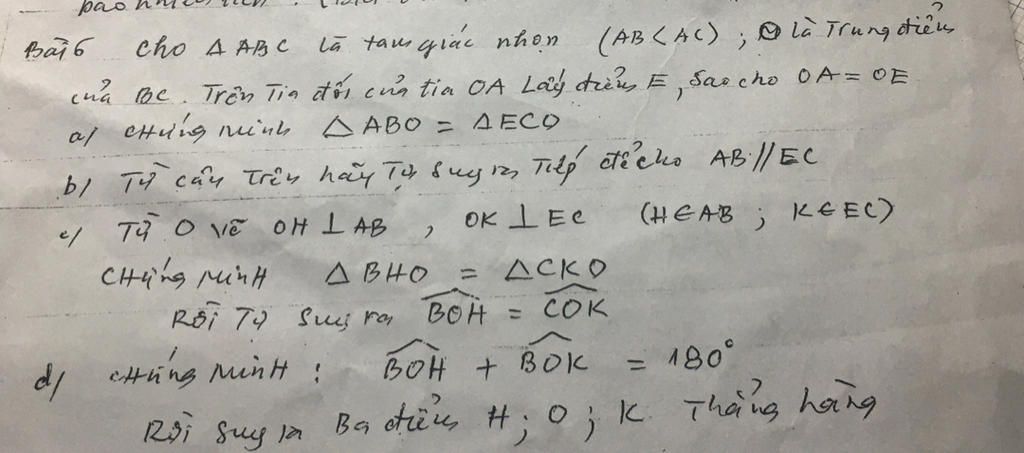 bao nhiêu
Bài 6 Cho Δ ABC là tam giác nhọn (AB < AC) ; O là Trung điểm
của BC. Trên Tia đối của tia OA Lấy điểm E, sao cho OA = OE
a/ CHứng minh Δ ABO = Δ ECO
b/ Từ câu trên hãy Tự suy ra Tiếp để cho AB // EC
c/ Từ O vẽ OH ⊥ AB , OK ⊥ EC (H ∈ AB ; K ∈ EC)
CHứng MinH Δ BHO = Δ CKO
Rồi Tự suy ra \widehat{BOH} = \widehat{COK}
d/ cHứng MinH : \widehat{BOH} + \widehat{BOK} = 180°
Rồi suy ra Ba điểm H ; O ; K Thẳng hàng